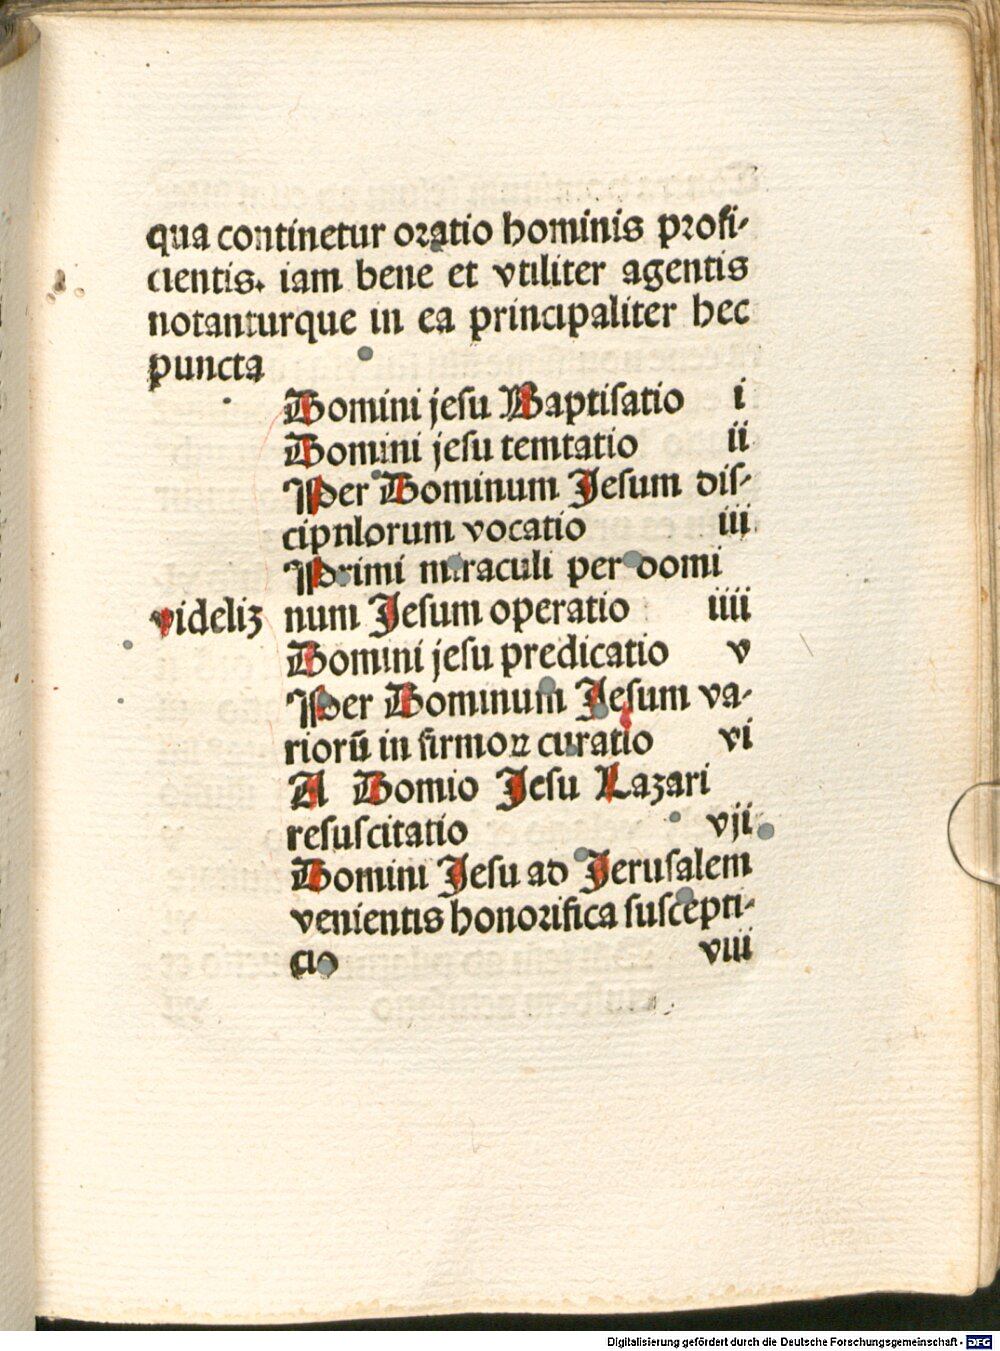 qua continetur oratio hominis profi-
cientis. iam bene et vtiliter agentis
notanturque in ea principaliter hec
puncta
Domini jesu Baptisatio i
Domini jesu temtatio ii
Per Dominum Jesum dis-
cipnlorum vocatio iii
Primi miraculi per domi
videliz num Jesum operatio iiii
Domini jesu predicatio v
Per Dominum Jesum va-
riorū in firmoꝝ curatio vi
A Domio Jesu Lazari
resuscitatio vii
Domini Jesu ad Jerusalem
venientis honorifica suscepti-
cio viii
Digitalisierung gefördert durch die Deutsche Forschungsgemeinschaft - DFG